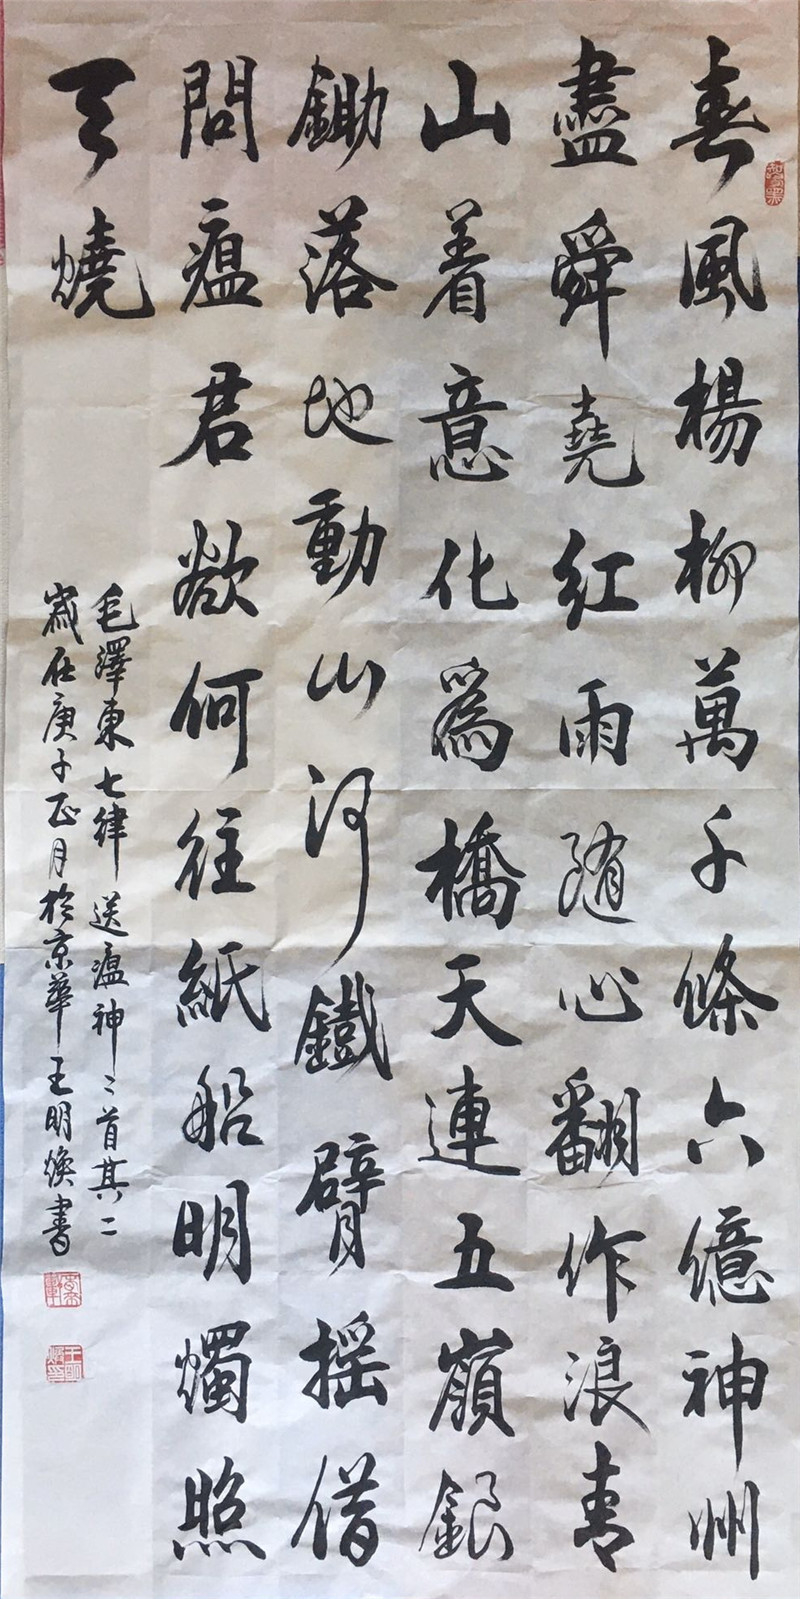 春風楊柳萬千條六億神州
盡舜堯紅雨随心翻作浪青
山着意化爲橋天連五嶺銀
鋤落地動山河鐵臂摇借
問瘟君欲何往紙船明燭照
天燒
毛澤東七律送瘟神二首其二
歲在庚子正月於京華王明煥書